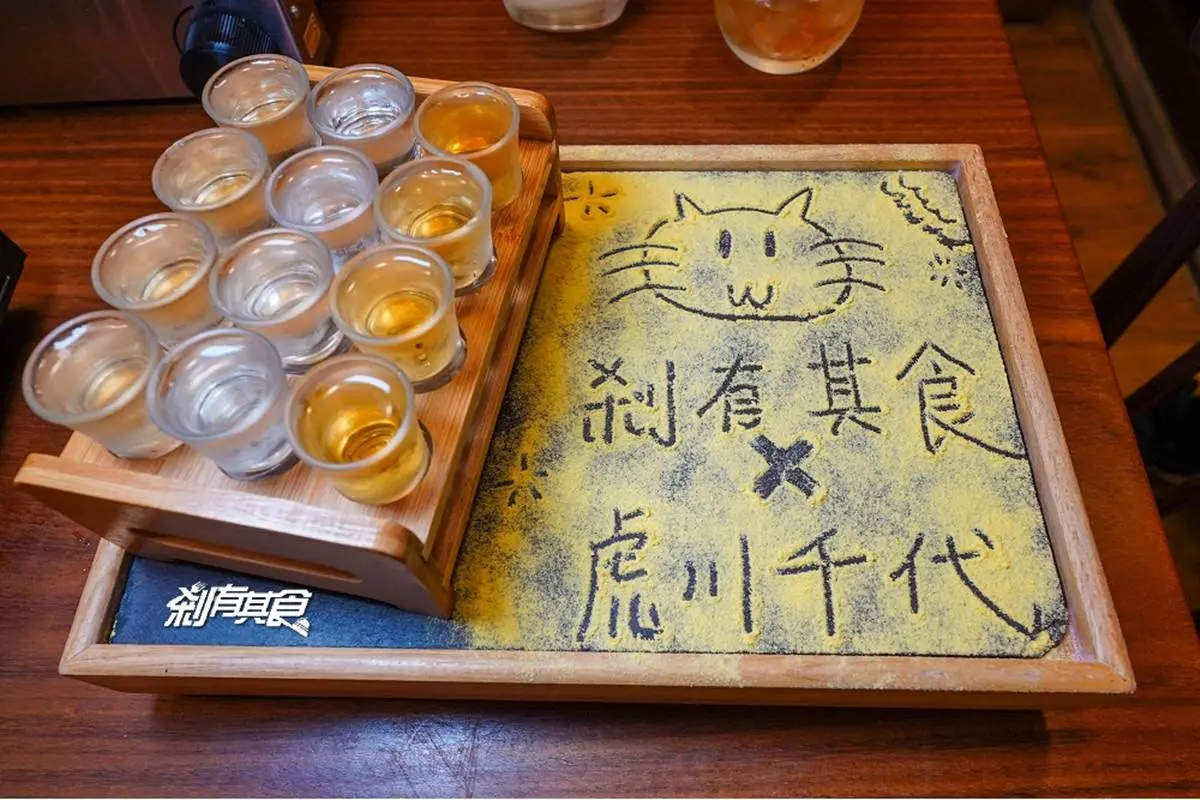 剎有其食
×
虎川千代
剎有其食